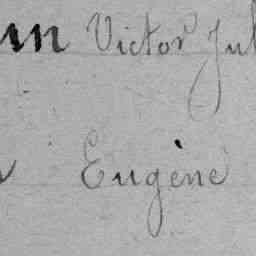 Victor Jul
Eugène